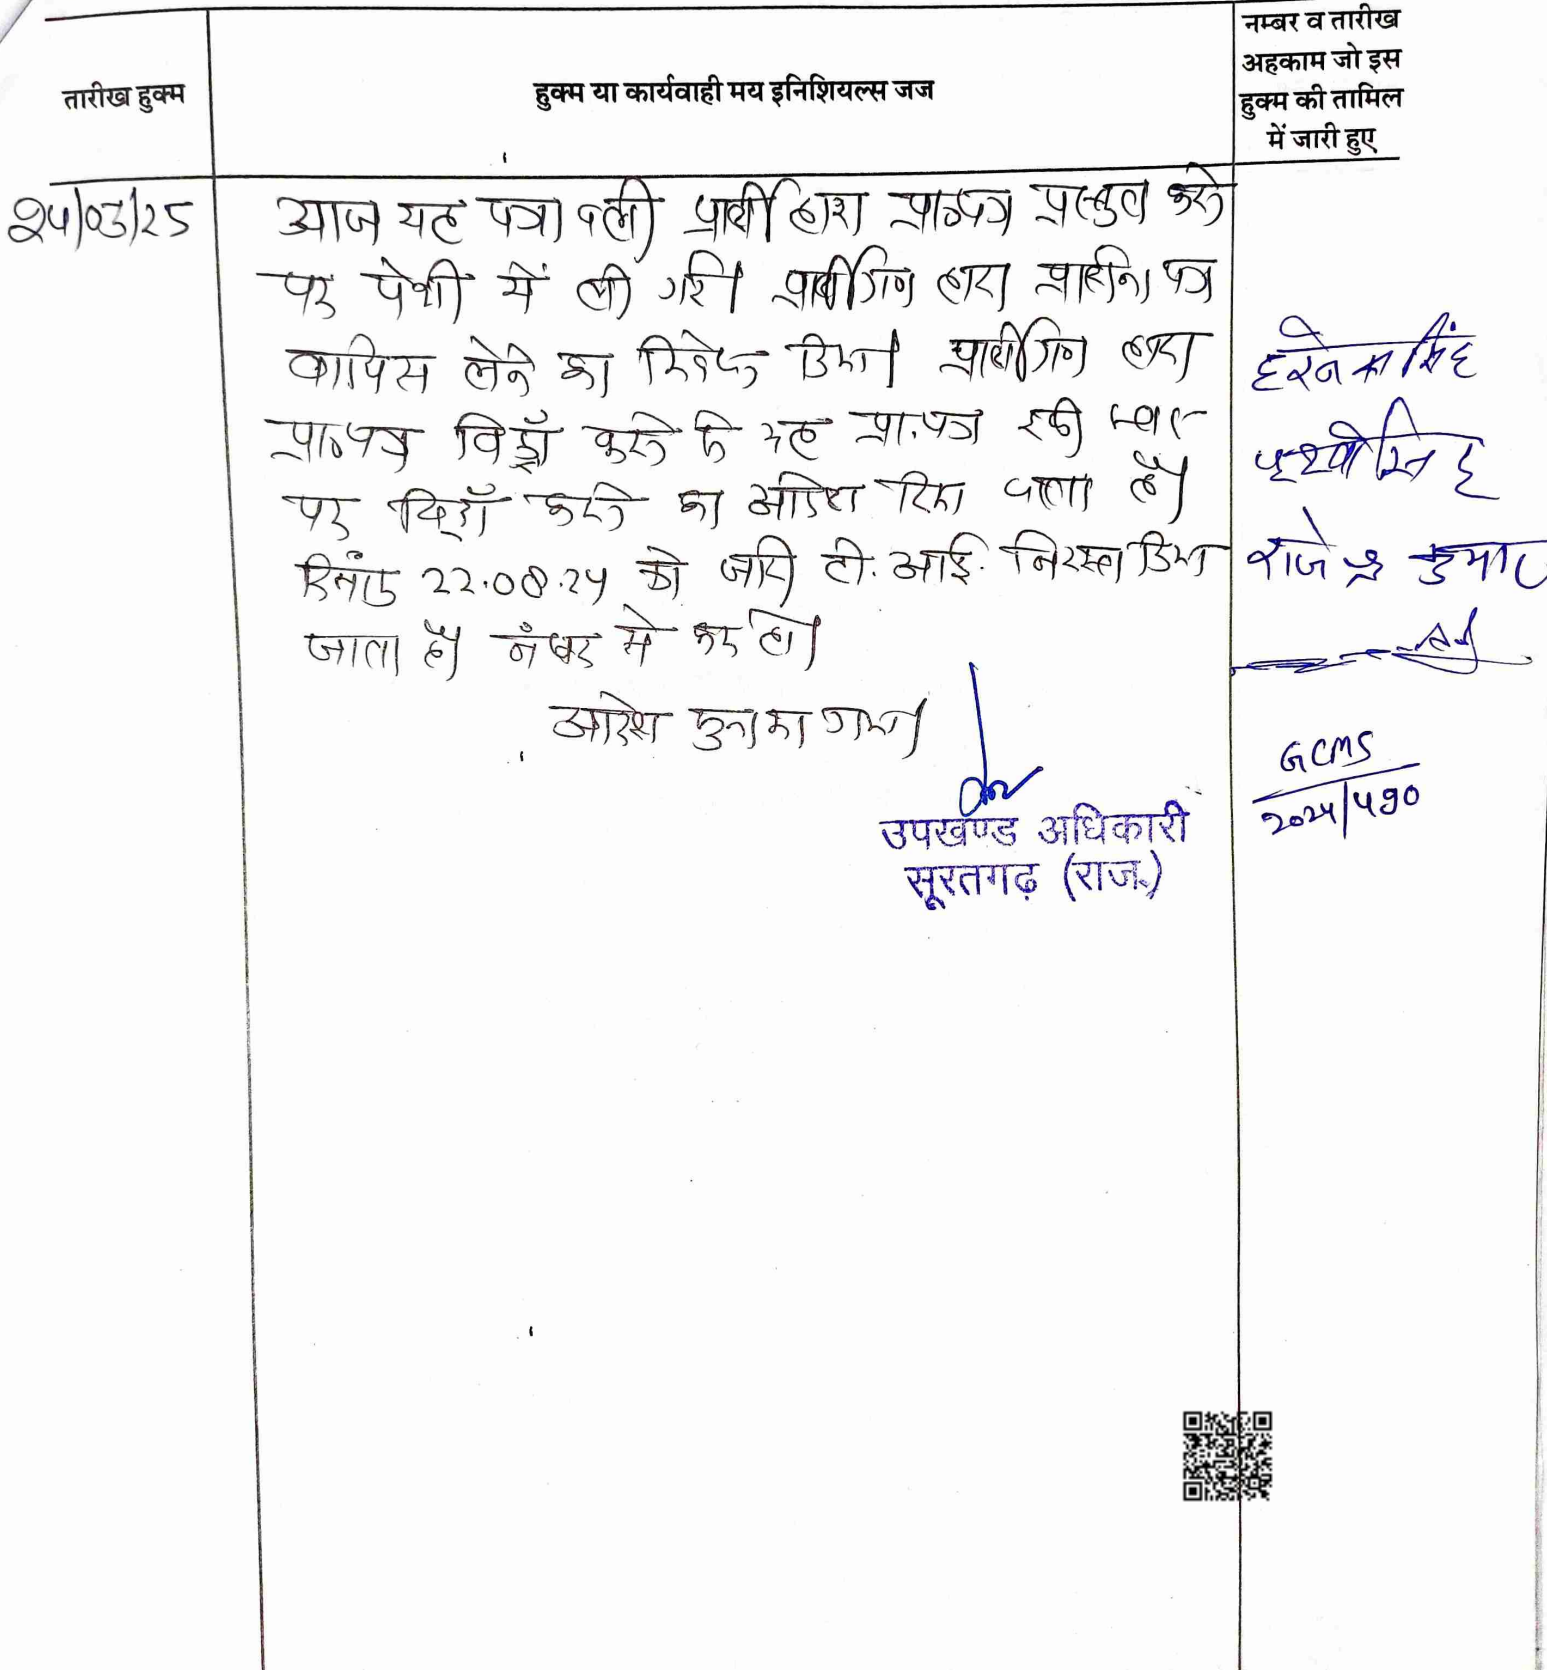 तारीख हुक्म
हुक्म या कार्यवाही मय इनिशियल्स जज
नम्बर व तारीख
अहकाम जो इस
हुक्म की तामिल
में जारी हुए
आज यह पत्रावली प्रार्थी द्वारा प्रा०पत्र प्रस्तुत करने
पर पेशी में ली गई। प्रार्थीगण द्वारा प्रार्थना पत्र
वापिस लेने का निवेदन किया। प्रार्थीगण द्वारा
प्रा०पत्र विड्रॉ करने से यह प्रा.पत्र इसी स्तर
पर विड्रॉ करने का आदेश दिया जाता है।
दिनांक 22.08.24 को जारी टी.आई. निरस्त किया
जाता है। नंबर से कम हो।
आदेश सुनाया गया।
उपखण्ड अधिकारी
सूरतगढ़ (राज.)
हरनेक सिंह
पृथ्वी सिंह
राजेन्द्र कुमार
GCMS